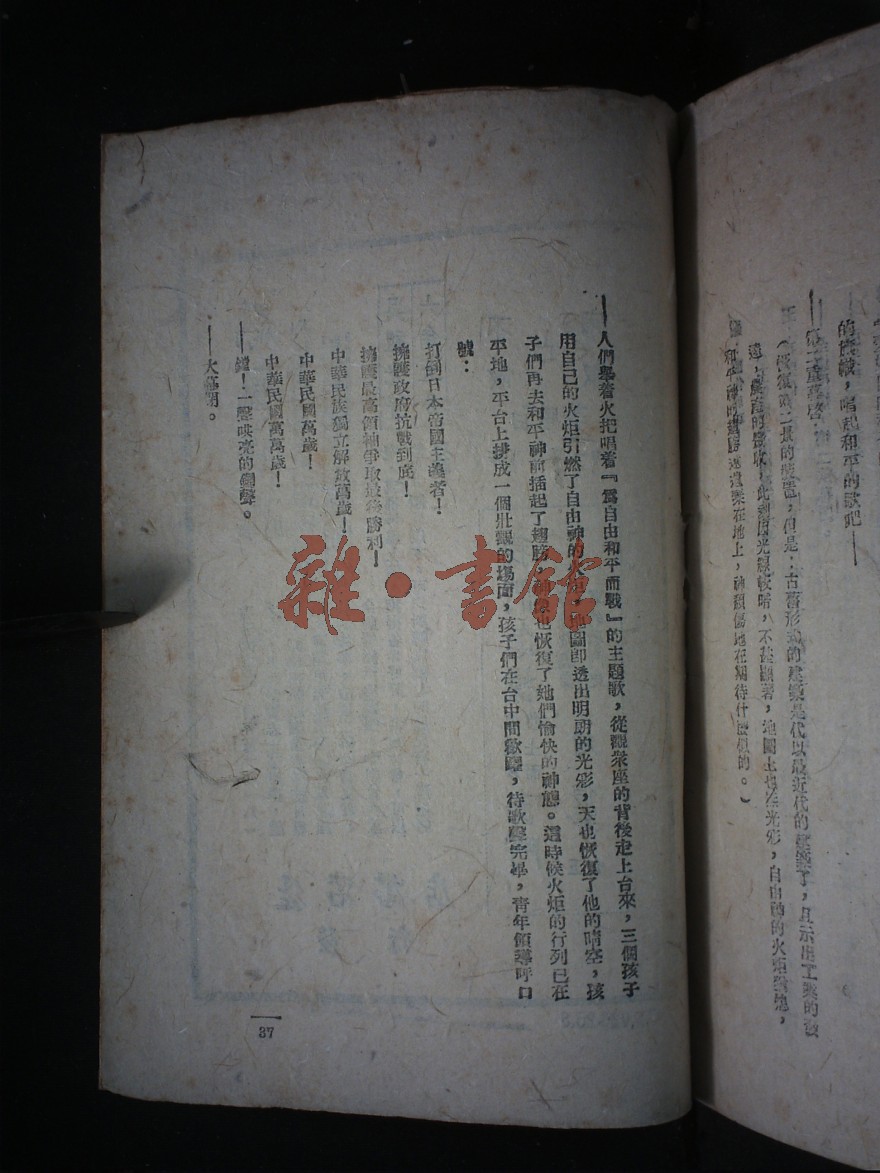 的
唱起和平的歌吧——
——第二重幕啓
但是：古舊形式的建築是代以最近代的建築了，且示出工業的發
達，農產的豐收，此刻因光線較暗，不甚顯著，地圖上
光彩，自由神的火炬
遺棄在地上，神頹傷地在期待什麼似的。）
——人們舉着火把唱着『爲自由和平而戰』的主題歌，從觀衆座的背後走上台來，三個孩子
用自己的火炬引燃了自由神的火炬，地圖卽透出明朗的光彩，天也恢復了他的晴空，孩
子們再去和平神前插起了翅膀，神像也恢復了她們愉快的神態。這時候火炬的行列已在
平地，平台上排成一個壯觀的場面，孩子們在台中間歡躍，待歌聲完畢，青年領導呼口
號：
打倒日本帝國主義者！
擁護政府抗戰到底！
擁護最高領袖爭取最後勝利！
中華民族獨立解放萬歲！
中華民國萬歲！
中華民國萬萬歲！
——鏜！一聲哄亮的鑼聲。
——大幕閉。
37
雜·書館